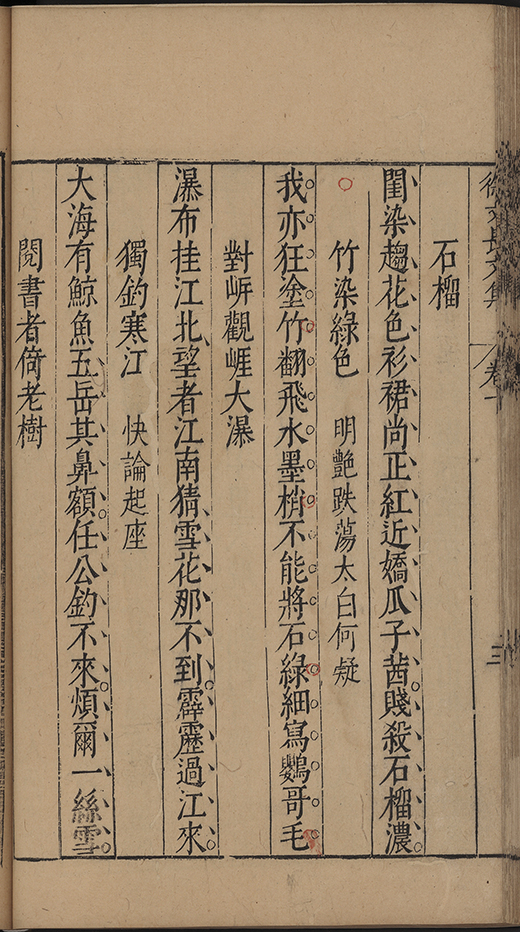 徐文長文集 卷十
石榴
閨染趨花色衫裙尚正紅近嬌瓜子茜賤殺石榴濃
竹染綠色 明艷跌蕩太白何疑
我亦狂塗竹翻飛水墨梢不能將石綠細寫鸚哥毛
對岍觀崕大瀑
瀑布挂江北望者江南猜雪花那不到霹靂過江來
獨釣寒江 快論起座
大海有鯨魚五岳其鼻額任公釣不來煩爾一絲雪
閱書者倚老樹